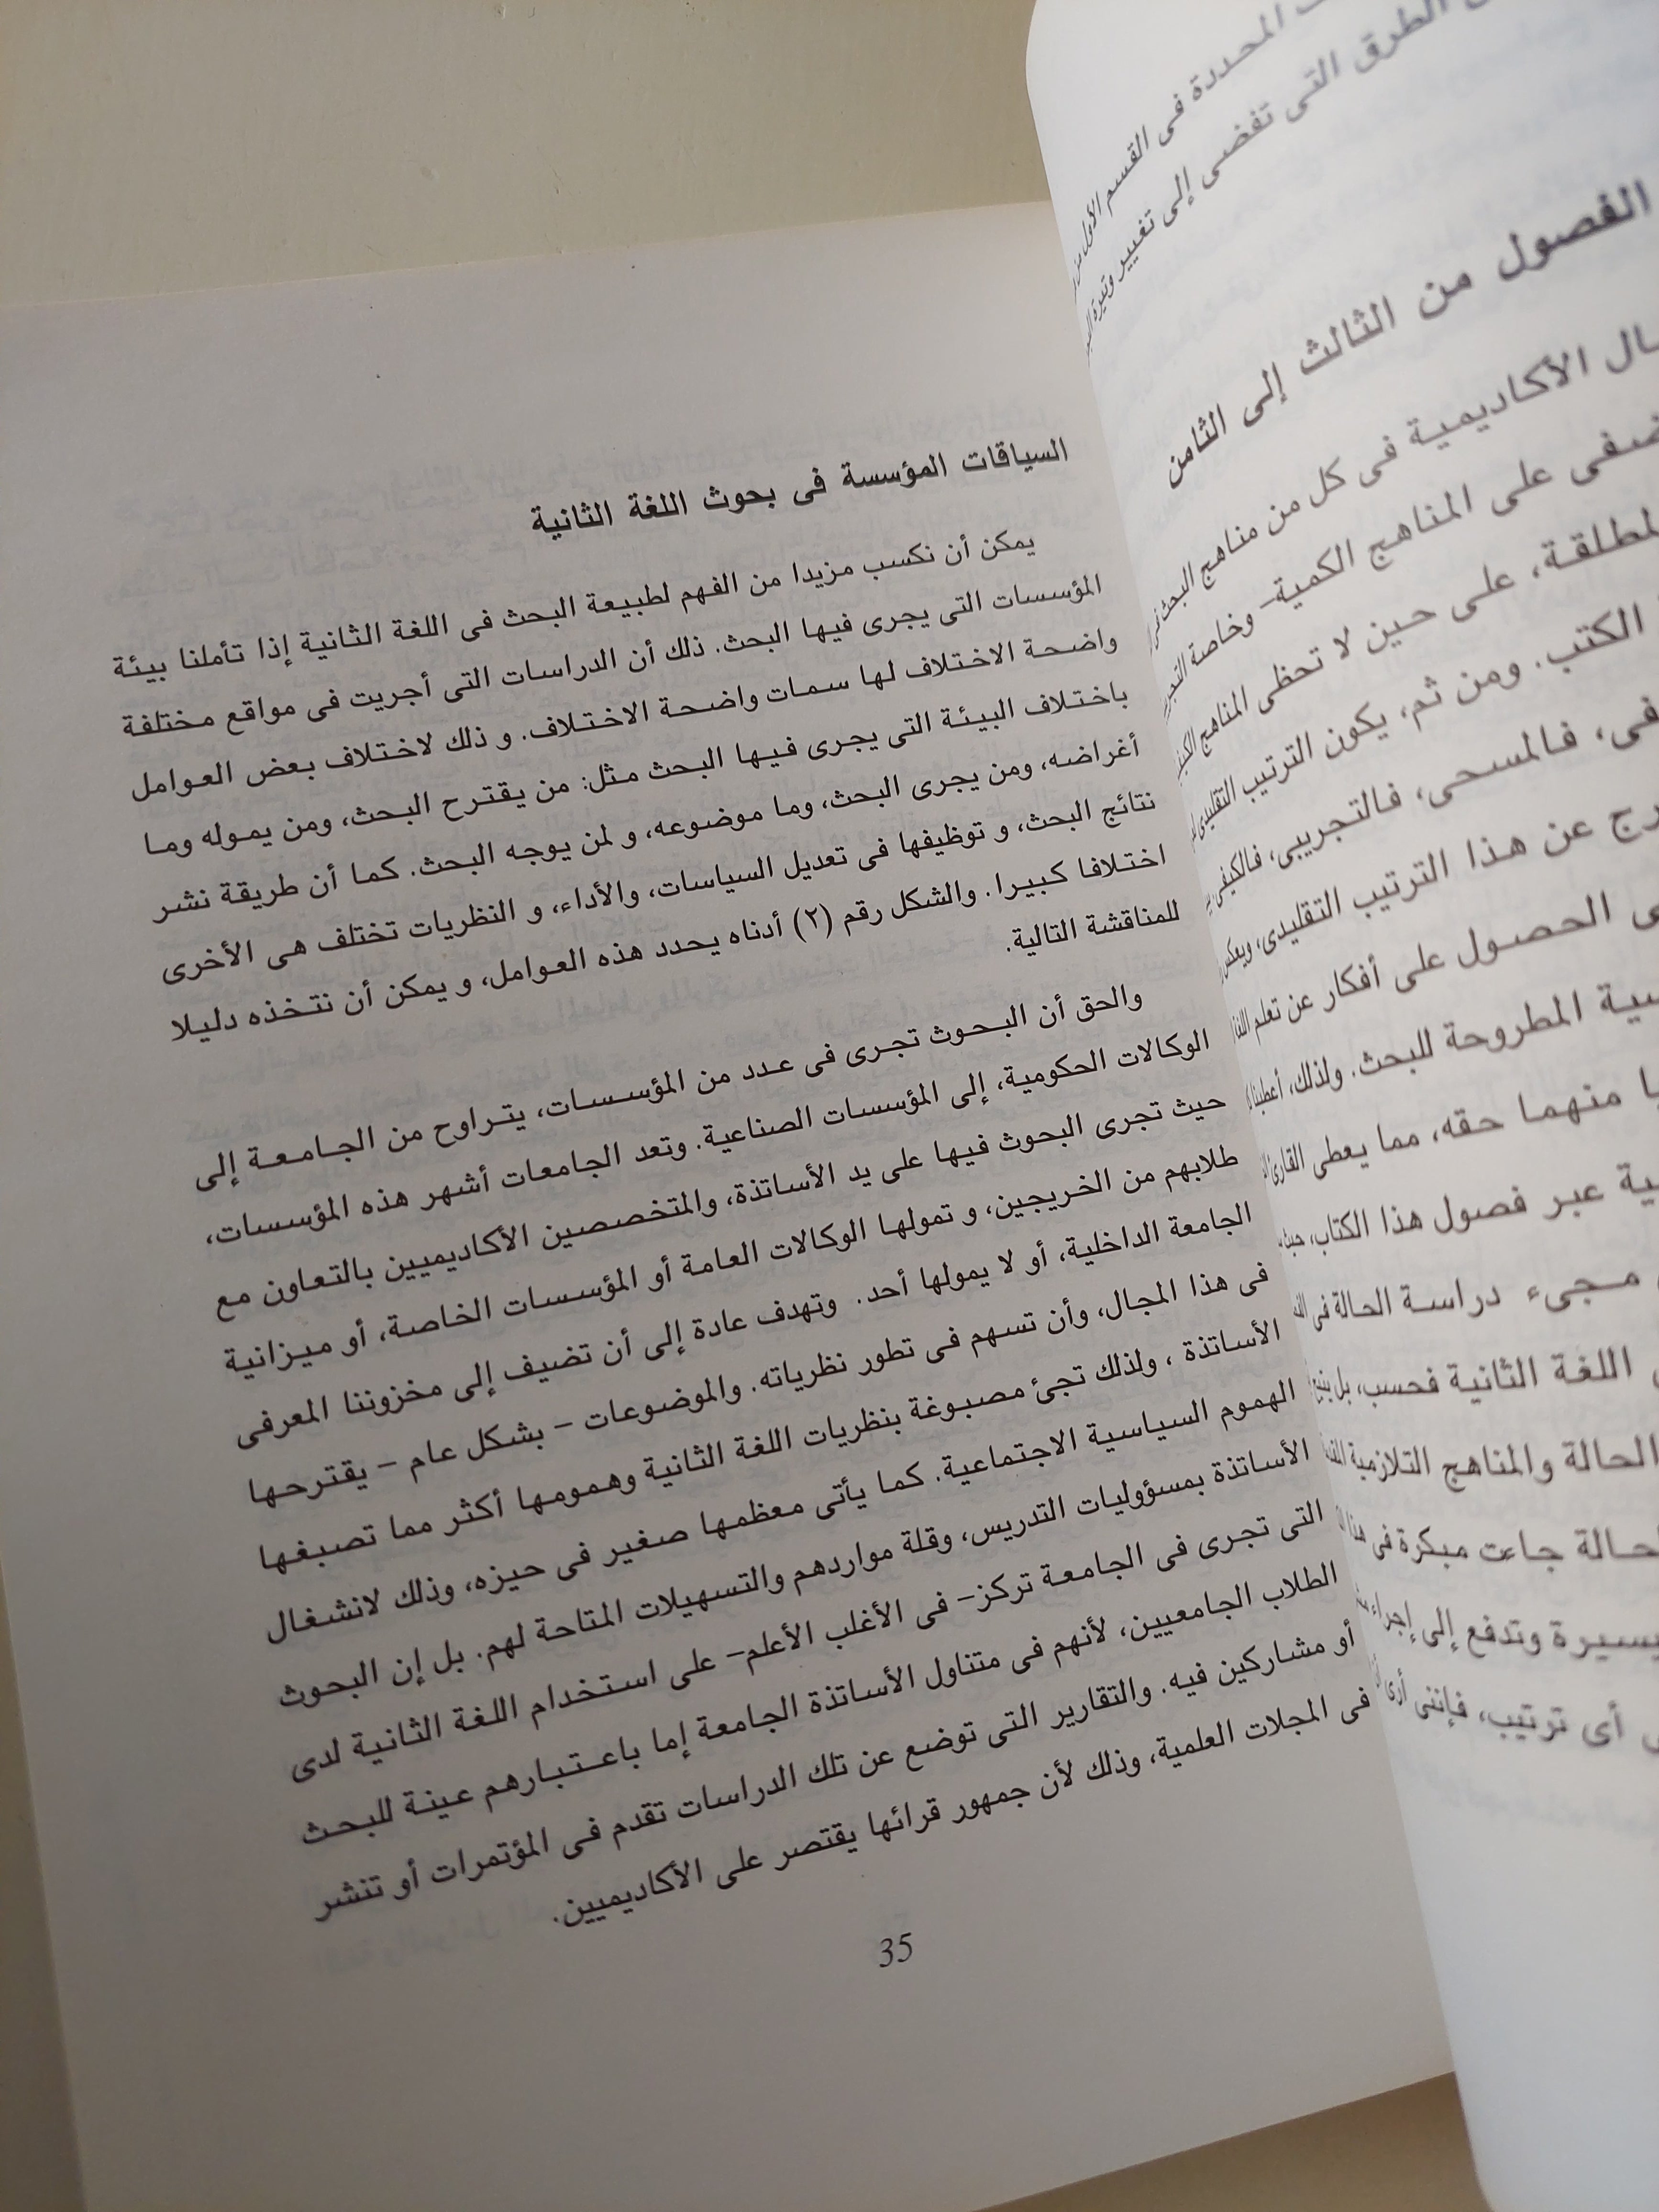 المحددة فى القسم الأول من
الطرق التى تفضى إلى تغيير وتيرة
الفصول من الثالث إلى الثامن
الأكاديمية فى كل من مناهج البحث
على المناهج الكمية- وخاصة
على حين لا تحظى المناهج
الكتب. ومن ثم، يكون الترتيب التقليدى
فالمسحى، فالتجريبى، فالكيفى
عن هذا الترتيب التقليدى،
الحصول على أفكار عن تعلم
المطروحة للبحث. ولذلك، أعطينا
منهما حقه، مما يعطى القارئ
عبر فصول هذا الكتاب،
مجىء دراسة الحالة فى
اللغة الثانية فحسب، بل
الحالة والمناهج التلازمية
جاءت مبكرة فى هذا
وتدفع إلى إجراء
أى ترتيب، فإننى أرى
السياقات المؤسسة فى بحوث اللغة الثانية
يمكن أن نكسب مزيدا من الفهم لطبيعة البحث فى اللغة الثانية إذا تأملنا بيئة
المؤسسات التى يجرى فيها البحث. ذلك أن الدراسات التى أجريت فى مواقع مختلفة
واضحة الاختلاف لها سمات واضحة الاختلاف. و ذلك لاختلاف بعض العوامل
باختلاف البيئة التى يجرى فيها البحث مثل: من يقترح البحث، ومن يموله وما
أغراضه، ومن يجرى البحث، وما موضوعه، و لمن يوجه البحث. كما أن طريقة نشر
نتائج البحث، و توظيفها فى تعديل السياسات، والأداء، و النظريات تختلف هى الأخرى
اختلافا كبيرا. والشكل رقم (٢) أدناه يحدد هذه العوامل، و يمكن أن نتخذه دليلا
للمناقشة التالية.
والحق أن البحوث تجرى فى عدد من المؤسسات، يتراوح من الجامعة إلى
الوكالات الحكومية، إلى المؤسسات الصناعية. وتعد الجامعات أشهر هذه المؤسسات،
حيث تجرى البحوث فيها على يد الأساتذة، والمتخصصين الأكاديميين بالتعاون مع
طلابهم من الخريجين، و تمولها الوكالات العامة أو المؤسسات الخاصة، أو ميزانية
الجامعة الداخلية، أو لا يمولها أحد. وتهدف عادة إلى أن تضيف إلى مخزوننا المعرفى
فى هذا المجال، وأن تسهم فى تطور نظرياته. والموضوعات – بشكل عام – يقترحها
الأساتذة ، ولذلك تجئ مصبوغة بنظريات اللغة الثانية وهمومها أكثر مما تصبغها
الهموم السياسية الاجتماعية. كما يأتى معظمها صغير فى حيزه، وذلك لانشغال
الأساتذة بمسؤوليات التدريس، وقلة مواردهم والتسهيلات المتاحة لهم. بل إن البحوث
التى تجرى فى الجامعة تركز– فى الأغلب الأعلم– على استخدام اللغة الثانية لدى
الطلاب الجامعيين، لأنهم فى متناول الأساتذة الجامعة إما باعتبارهم عينة للبحث
أو مشاركين فيه. والتقارير التى توضع عن تلك الدراسات تقدم فى المؤتمرات أو تنشر
فى المجلات العلمية، وذلك لأن جمهور قرائها يقتصر على الأكاديميين.
35